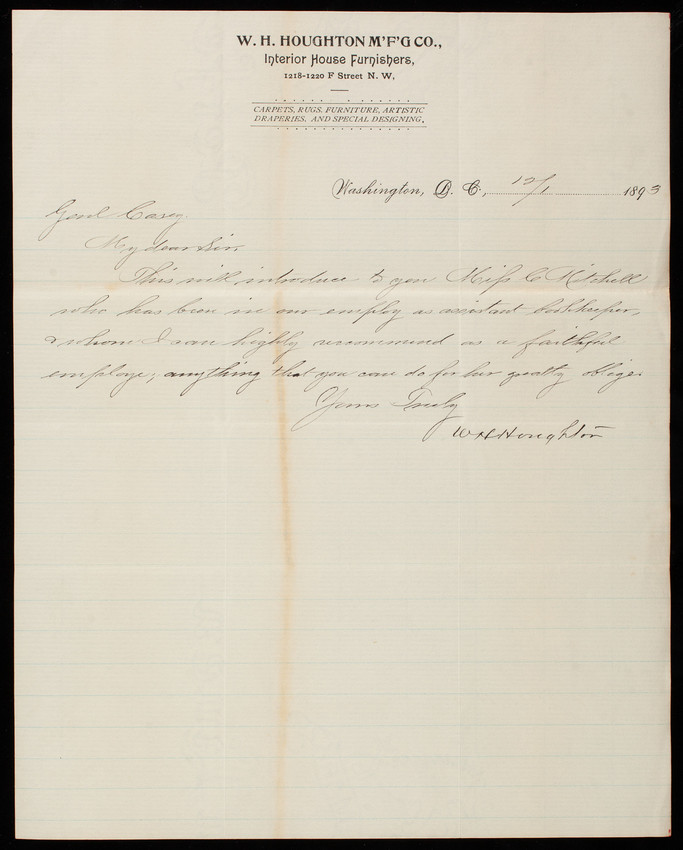 W. H. HOUGHTON M'F'G CO.,
Interior House Furnishers,
1218-1220 F Street N. W,
CARPETS, RUGS, FURNITURE, ARTISTIC
DRAPERIES, AND SPECIAL DESIGNING.
Washington, D. C., 12/1 1893
Genl Casey.
My dear Sir,
This will introduce to you Miss C Mitchell
who has been in our employ as assistant bookkeeper,
& whom I can highly recommend as a faithful
employe, anything that you can do for her greatly oblige
Yours Truly
W H Houghton